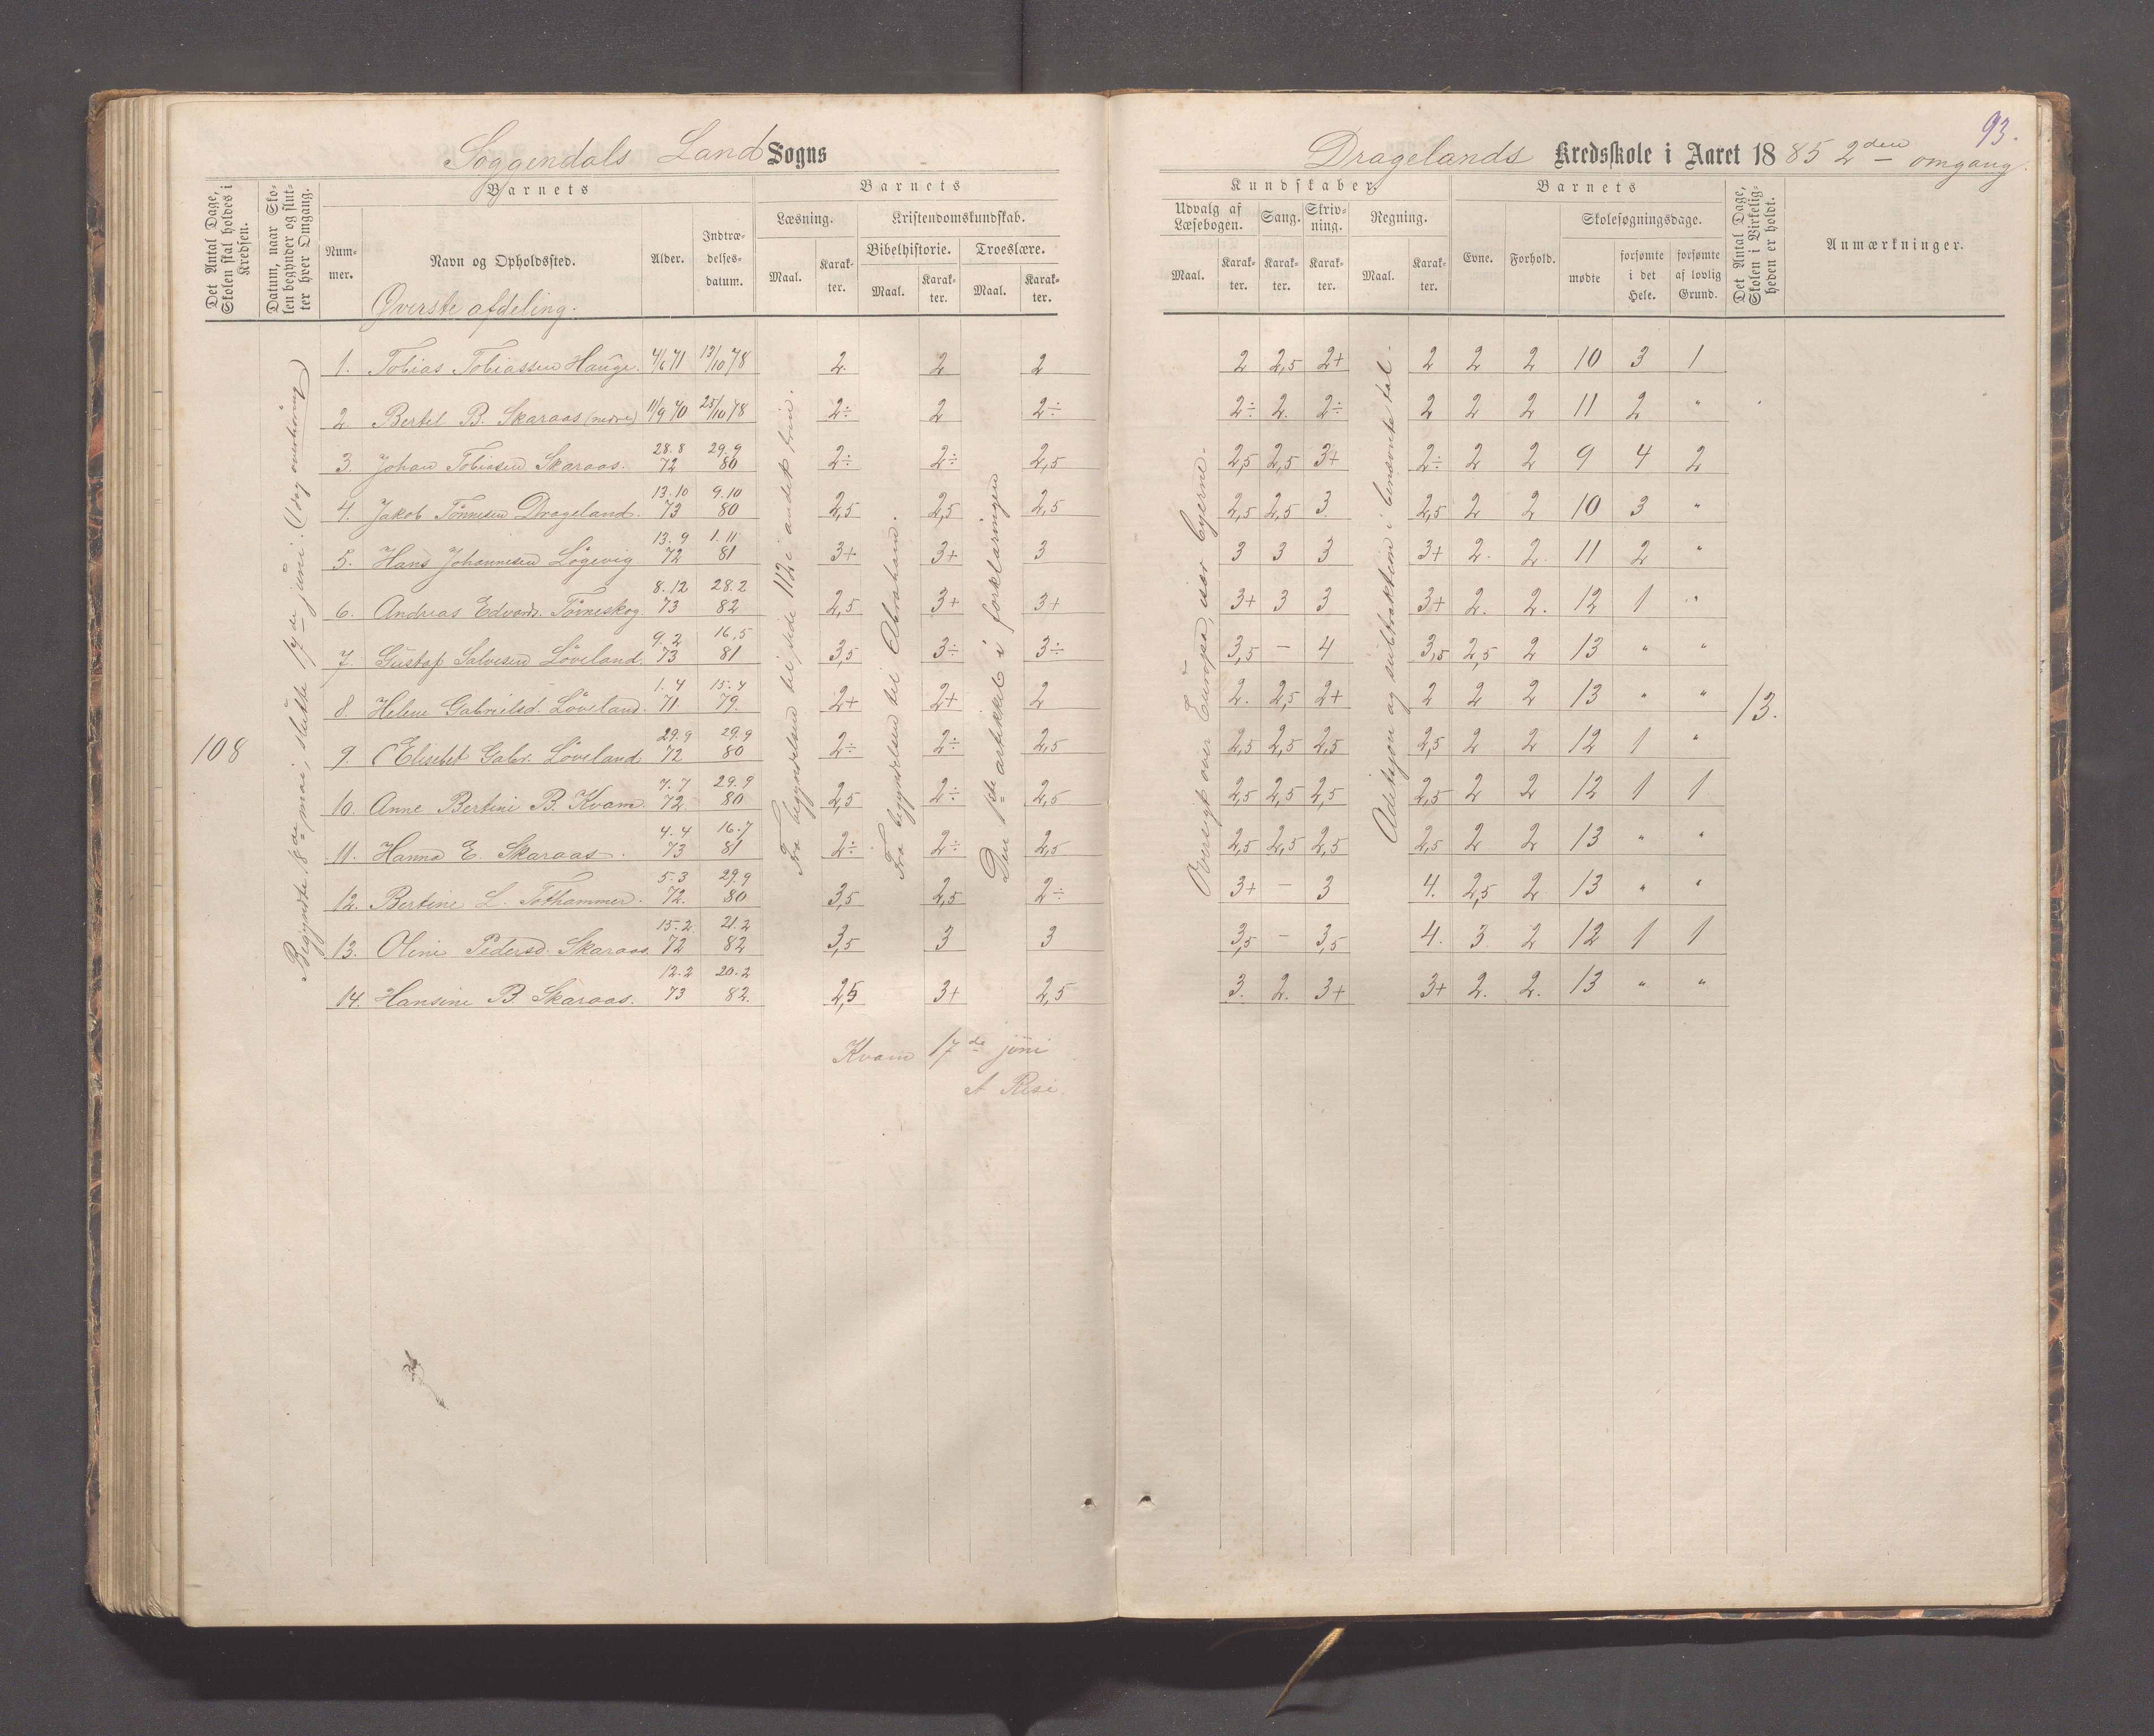 93.
Soggendals Land Sogns
Dragelands Kredsskole i Aaret 1885 2den omgang.
Det Antal Dage, Skolen skal holdes i Kredsen.
Datum, naar Skolen begynder og slutter hver Omgang.
Barnets
Nummer.
Navn og Opholdssted.
Alder.
Indtrædelsesdatum.
Barnets
Læsning.
Maal.
Karakter.
Kristendomskundskab.
Bibelhistorie.
Maal.
Karakter.
Troeslære.
Maal.
Karakter.
Kundskaber.
Udvalg af Læsebogen.
Maal.
Karakter.
Sang.
Karakter.
Skrivning.
Karakter.
Regning.
Maal.
Karakter.
Barnets
Evne.
Forhold.
Skolesøgningsdage.
mødte
forsømte i det Hele.
forsømte af lovlig Grund.
Det Antal Dage, Skolen i Virkeligheden er holdt.
Anmærkninger.
Øverste afdeling.
108
Begyndte 18de mai, slutte 17de juni. (1 dag overhöring)
Fra begyndelsen til side 112 i andet trin.
Fra begyndelsen til Abraham.
Den 1ste artikkel i forklaringen
Oversigt over Europa, især byerne.
Adisjon og subtraktion i benævnte tal.
13.
1. Tobias Tobiassen Hauge. 4/6 71 13/10 78 2. 2 2 2 2,5 2+ 2 2 2 10 3 1
2. Bertel B. Skaraas (nedre) 11/9 70 25/10 78 2÷ 2 2÷ 2÷ 2. 2÷ 2 2 2 11 2 "
3. Johan Tobiasen Skaraas. 28.8 72 29.9 80 2÷ 2÷ 2,5 2,5 2,5 3+ 2÷ 2 2 9 4 2
4. Jakob Tönnesen Drageland. 13.10 73 9.10 80 2,5 2,5 2,5 2,5 2,5 3. 2,5 2 2 10 3 "
5. Hans Johannesen Lögevig 13.9 72 1.11 81 3+ 3+ 3 3 3 3 3+ 2. 2. 11 2 "
6. Andreas Edvards. Törneskog. 8.12 73 28.2 82 2,5 3+ 3+ 3+ 3 3 3+ 2. 2. 12 1 "
7. Gustaf Salvesen Löveland. 9.2 73 16.5 81 3,5 3÷ 3÷ 3,5 – 4 3,5 2,5 2 13 " "
8. Helene Gabrielsd. Löveland. 1.4 71. 15.4 79. 2+ 2+ 2 2. 2,5 2+ 2 2 2 13 " "
9. Elisebet Gabr. Löveland 29.9 72 29.9 80 2÷ 2÷ 2,5 2,5 2,5 2,5 2,5 2 2 12 1 "
10. Anne Bertini B. Kvam. 7.7 72. 29.9 80 2,5 2÷ 2,5 2,5 2,5 2,5 2,5 2 2 12 1 1
11. Hanna E. Skaraas. 4.4 73 16.7 81 2÷ 2÷ 2,5 2,5 2,5 2,5 2,5 2 2 13 " "
12. Bertine L. Tothammer. 5.3 72. 29.9 80 3,5 2,5 2÷ 3+ – 3 4. 2,5 2 13 " "
13. Oline Pedersd. Skaraas. 15.2 72 21.2 82 3,5 3 3 3,5 – 3,5 4. 3. 2 12 1 1
14. Hansine B. Skaraas. 12.2 73 20.2 82. 2,5 3+ 2,5 3. 2. 3+ 3+ 2. 2. 13 " "
Kvam 17de juni
A Resi.